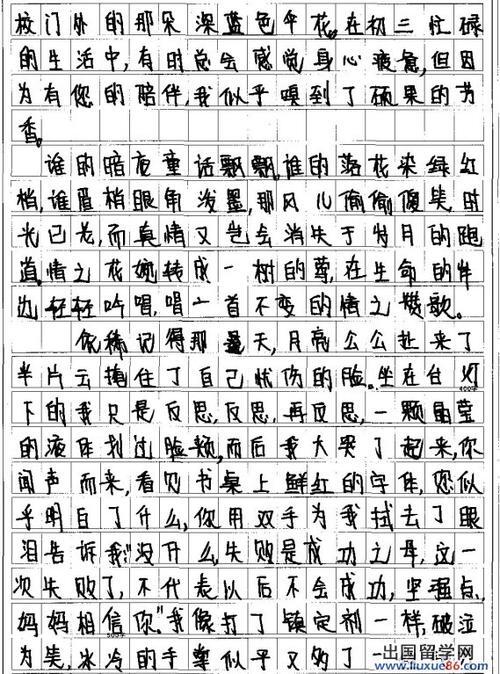 校门外的那朵深蓝色伞花。在初三忙碌
的生活中,有时总会感觉身心疲惫,但因
为有您的陪伴,我似乎嗅到了硕果的芳
香。
谁的暗夜童话飘飘,谁的落花染绿红
梢,谁眉梢眼角泼墨,那风儿偷偷傻笑,时
光已老,而真情又岂会消失于岁月的跑
道,情之花婉转成一树的尊,在生命的伴
边轻轻吟唱,唱一首不变的情之赞歌。
依稀记得那一天,月亮公公赶来了
半片云掩住了自己忧伤的脸。坐在台灯
400字
下的我只是反思,反思,再反思,一颗晶莹
的液体划过脸颊,而后我大哭了起来,你
闻声而来,看见书桌上鲜红的字体,您似
乎明白了什么,你用双手为我拭去了眼
泪告诉我:"没什么,失败是成功之母,这一
次失败了,不代表以后不会成功,坚强点,
妈妈相信你"我像打了镇定剂一样,破泣
为笑,冰冷的手掌似乎又够了一
出国留学网
www.liuxue86.com